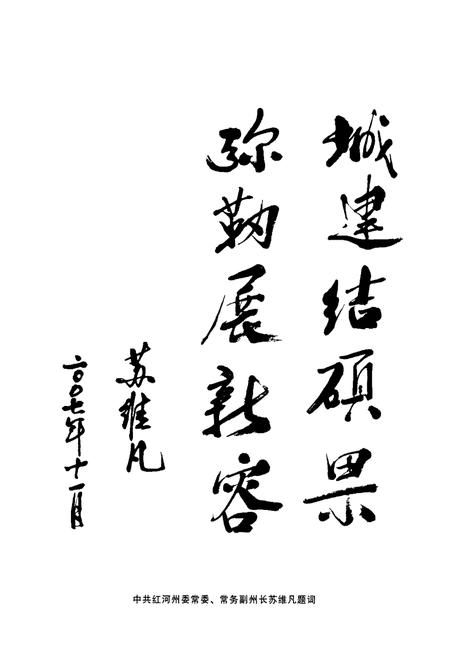 城建结硕果
弥勒展新容
苏维凡
二〇〇七年十一月
中共红河州委常委、常务副州长苏维凡题词